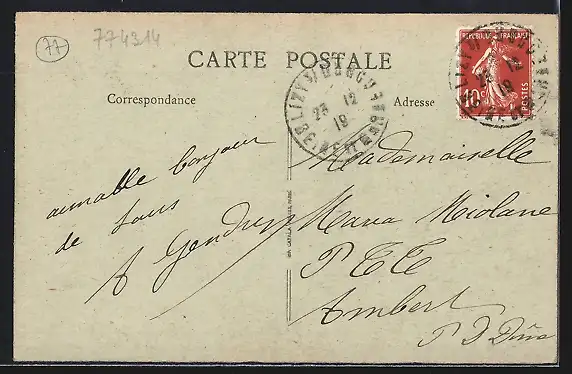 77
774314
CARTE POSTALE
Correspondance
Adresse
REPUBLIQUE FRANÇAISE
10c
POSTES
LIZY S/ OURCQ
23 12
19
SEINE ET MARNE
aimable bonjour
de tous
A Gendrey
Mademoiselle
Maria Miolane
PTT
Ambert
P D Dôme